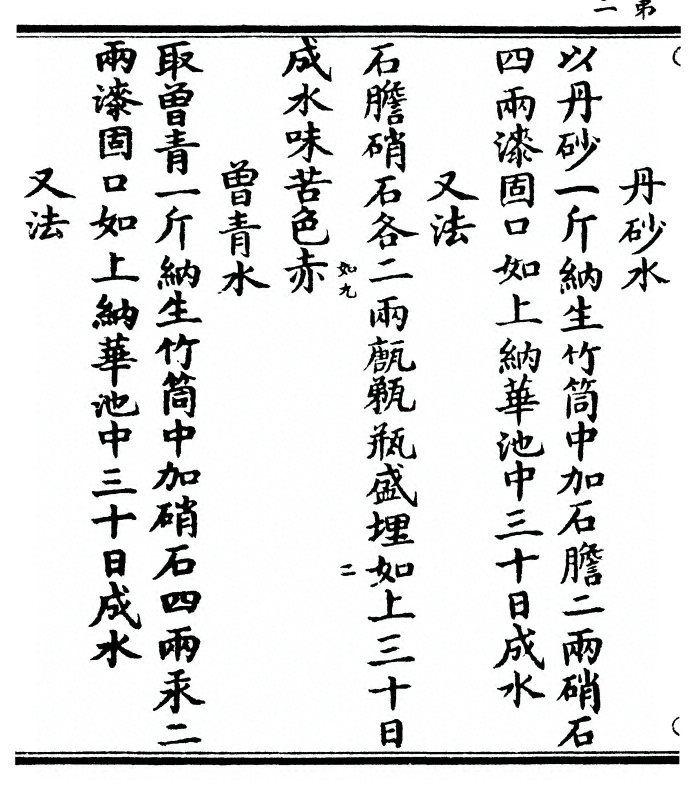 第二
丹砂水
以丹砂一斤納生竹筒中加石膽二兩硝石
四兩漆固口如上納華池中三十日成水
又法
石膽硝石各二兩甒甀瓶盛埋如上三十日
二
成水味苦色赤
如九
曾青水
取曾青一斤納生竹筒中加硝石四兩汞二
兩漆固口如上納華池中三十日成水
又法